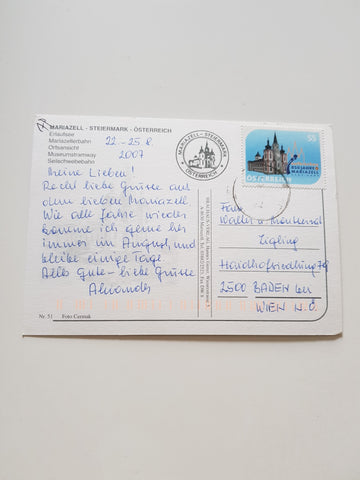 MARIAZELL - STEIERMARK - ÖSTERREICH
Erlaufsee
Mariazellerbahn
Ortsansicht
Museumstramway
Seilschwebebahn
22.-25.8.
2007
Meine Lieben!
Recht liebe Grüsse aus
dem lieben Mariazell
Wie alle Jahre wieder
komme ich gerne her
immer im August, und
bleibe einige Tage.
Alles Gute - liebe Grüsse
MARIAZELL - STEIERMARK
ÖSTERREICH
55
850 JAHRE
MARIAZELL
ÖSTERREICH
Fam
Walter u
Haidhofsiedlung
2500 BADEN bei
WIEN N.Ö.
Nr. 51
Foto Cermak